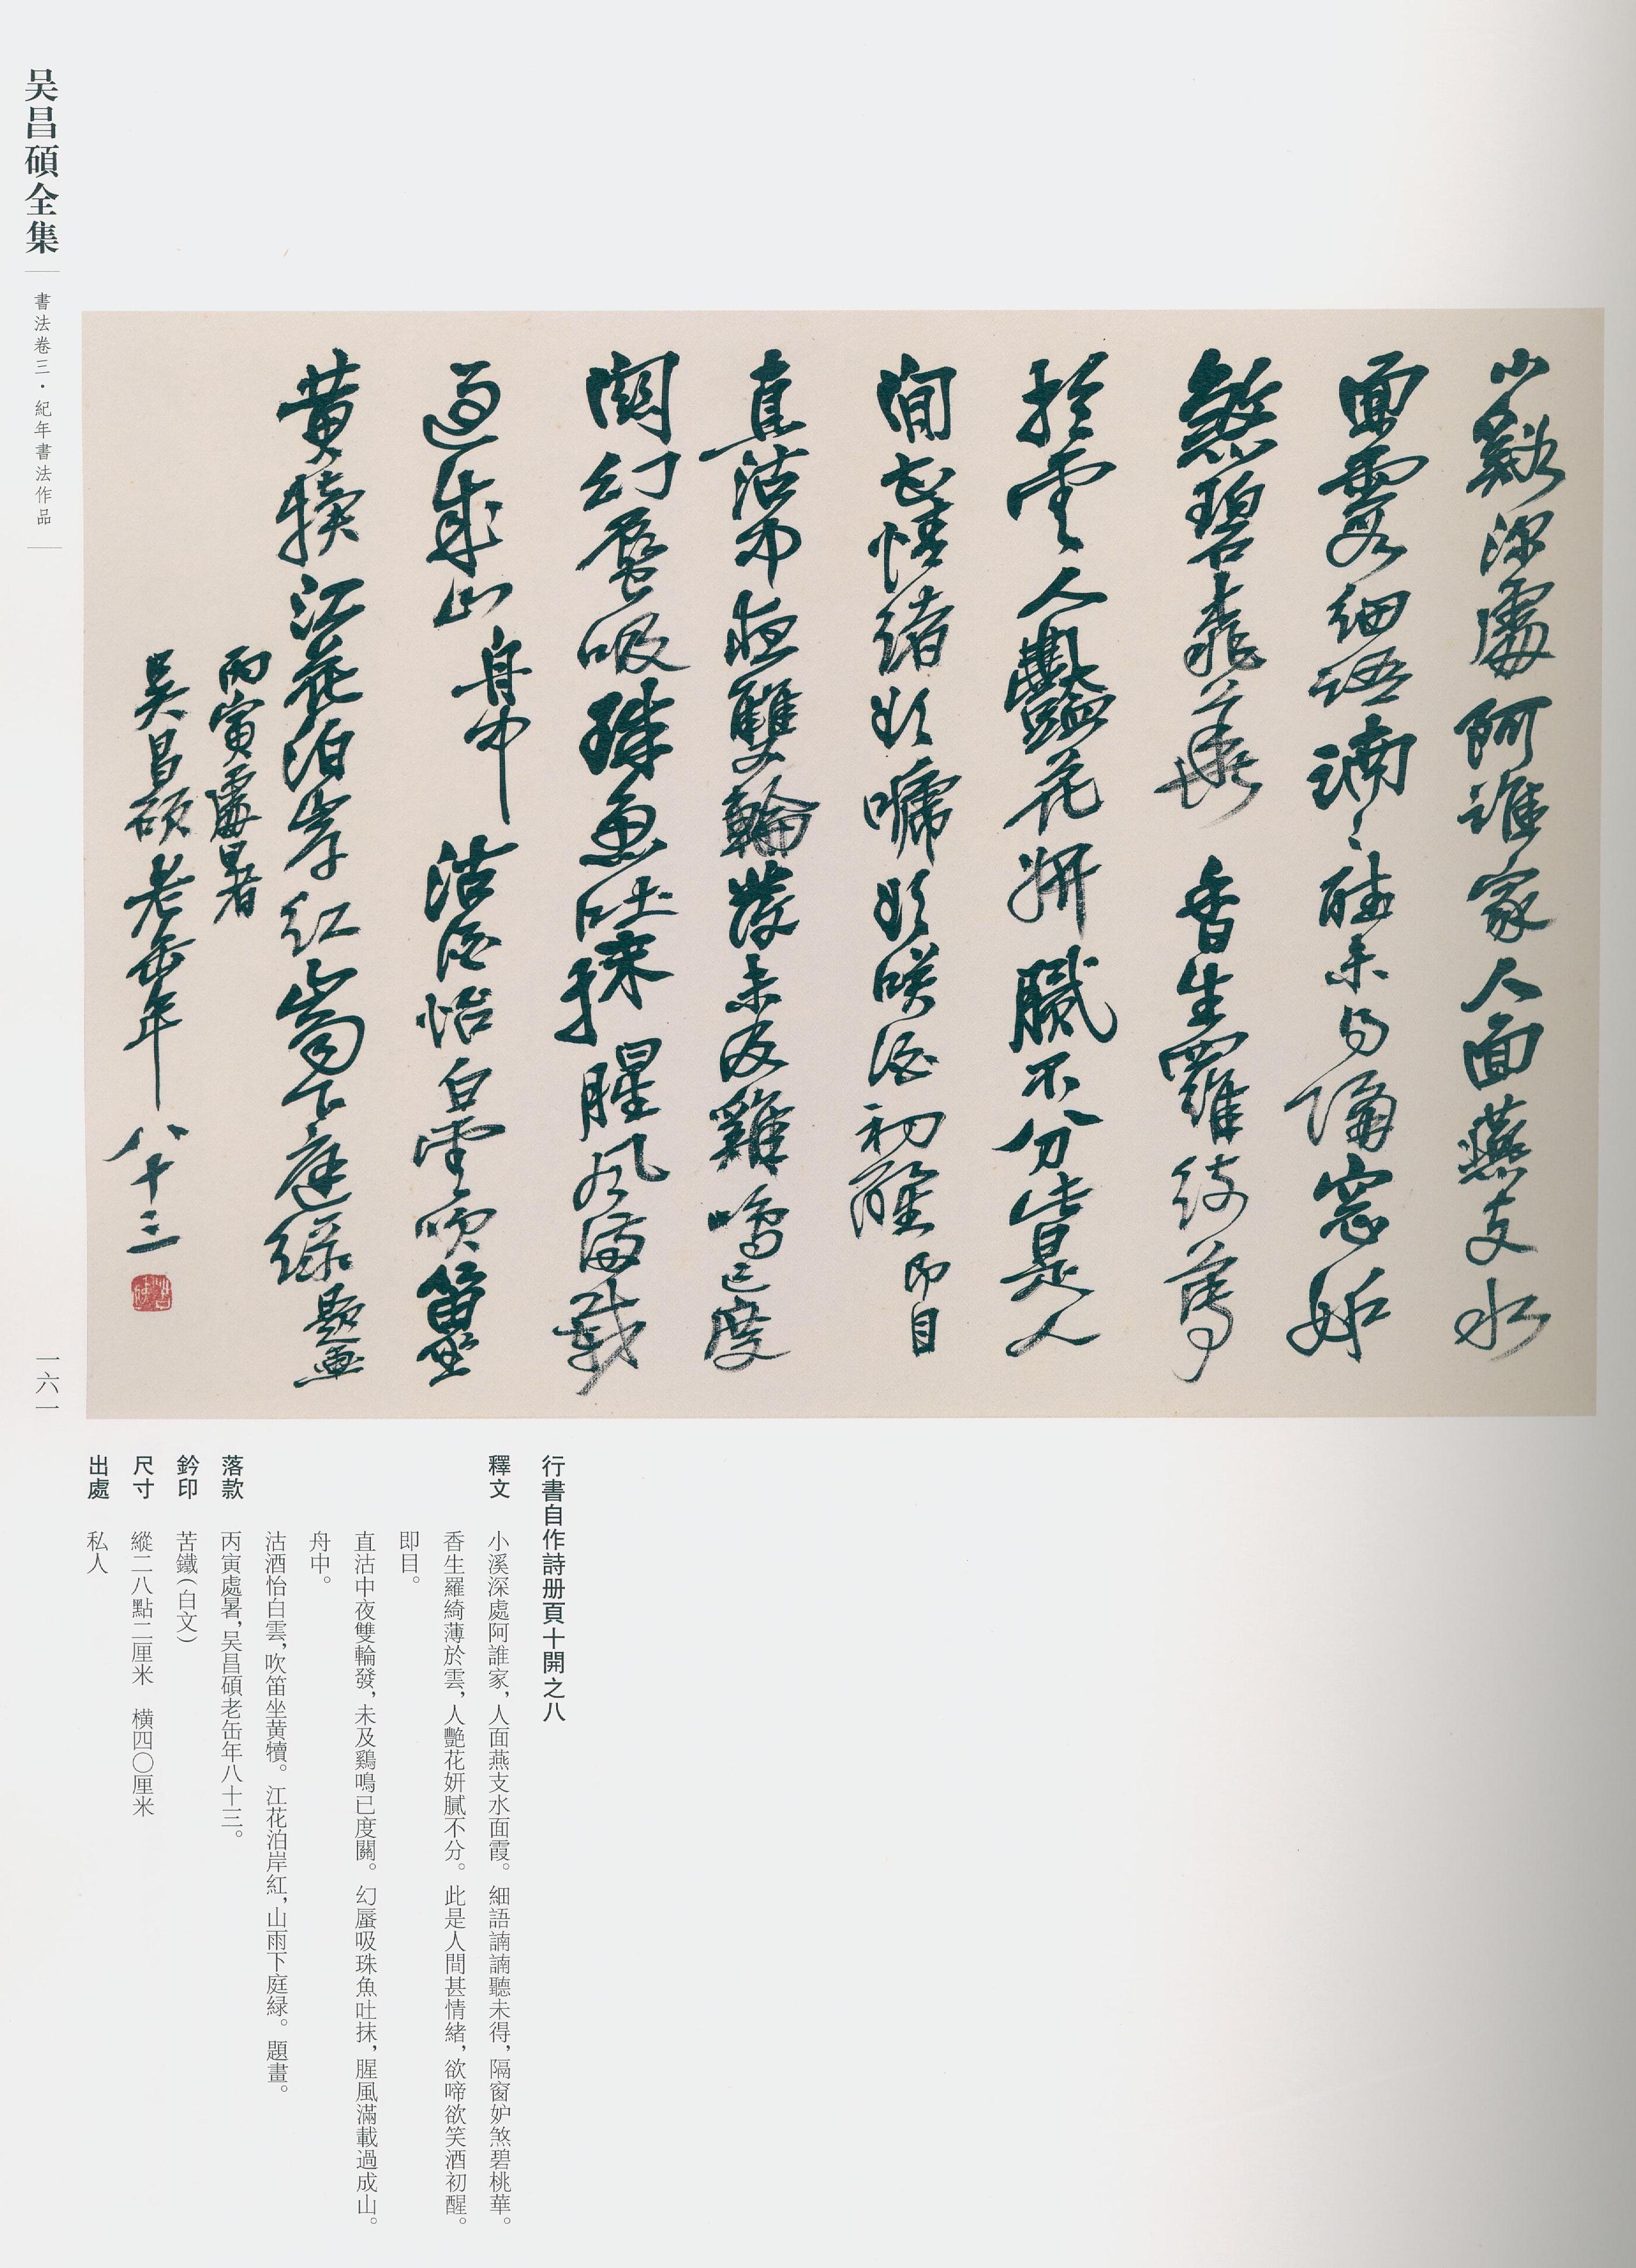 吴昌碩全集
書法卷三·紀年書法作品
一六一
小谿深處阿誰家人面燕支水
面霞細語諵〻聽未得隔窓妒
煞碧桃華 香生羅綺薄
於雲人豔花妍膩不分此是人
間甚情緒欲嗁欲咲酒初醒 即目
直沽中夜雙輪發未及雞鳴已度
關幻蜃吸珠魚吐抹腥風滿載
過成山 舟中 沽酒怡白雲吹笛坐
黃犢江花泊岸紅山雨下庭綠 題畫
丙寅處暑
吳昌碩老缶年八十三
苦鐵
行書自作詩册頁十開之八
釋文 小溪深處阿誰家，人面燕支水面霞。細語諵諵聽未得，隔窗妒煞碧桃華。
香生羅綺薄於雲，人艷花妍膩不分。此是人間甚情緒，欲啼欲笑酒初醒。
即目。
直沽中夜雙輪發，未及鷄鳴已度關。幻蜃吸珠魚吐抹，腥風滿載過成山。
舟中。
沽酒怡白雲，吹笛坐黄犢。江花泊岸紅，山雨下庭緑。題畫。
落款 丙寅處暑，吴昌碩老缶年八十三。
鈐印 苦鐵（白文）
尺寸 縱二八點二厘米 橫四〇厘米
出處 私人